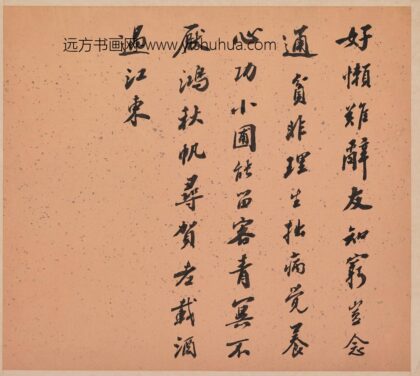 远方书画网 www.yfshuhua.com
好懶難辭友知窮豈念
通貧非理生拙病覺養
心功小圃能留客青冥不
厭鴻秋帆尋賀老載酒
過江東